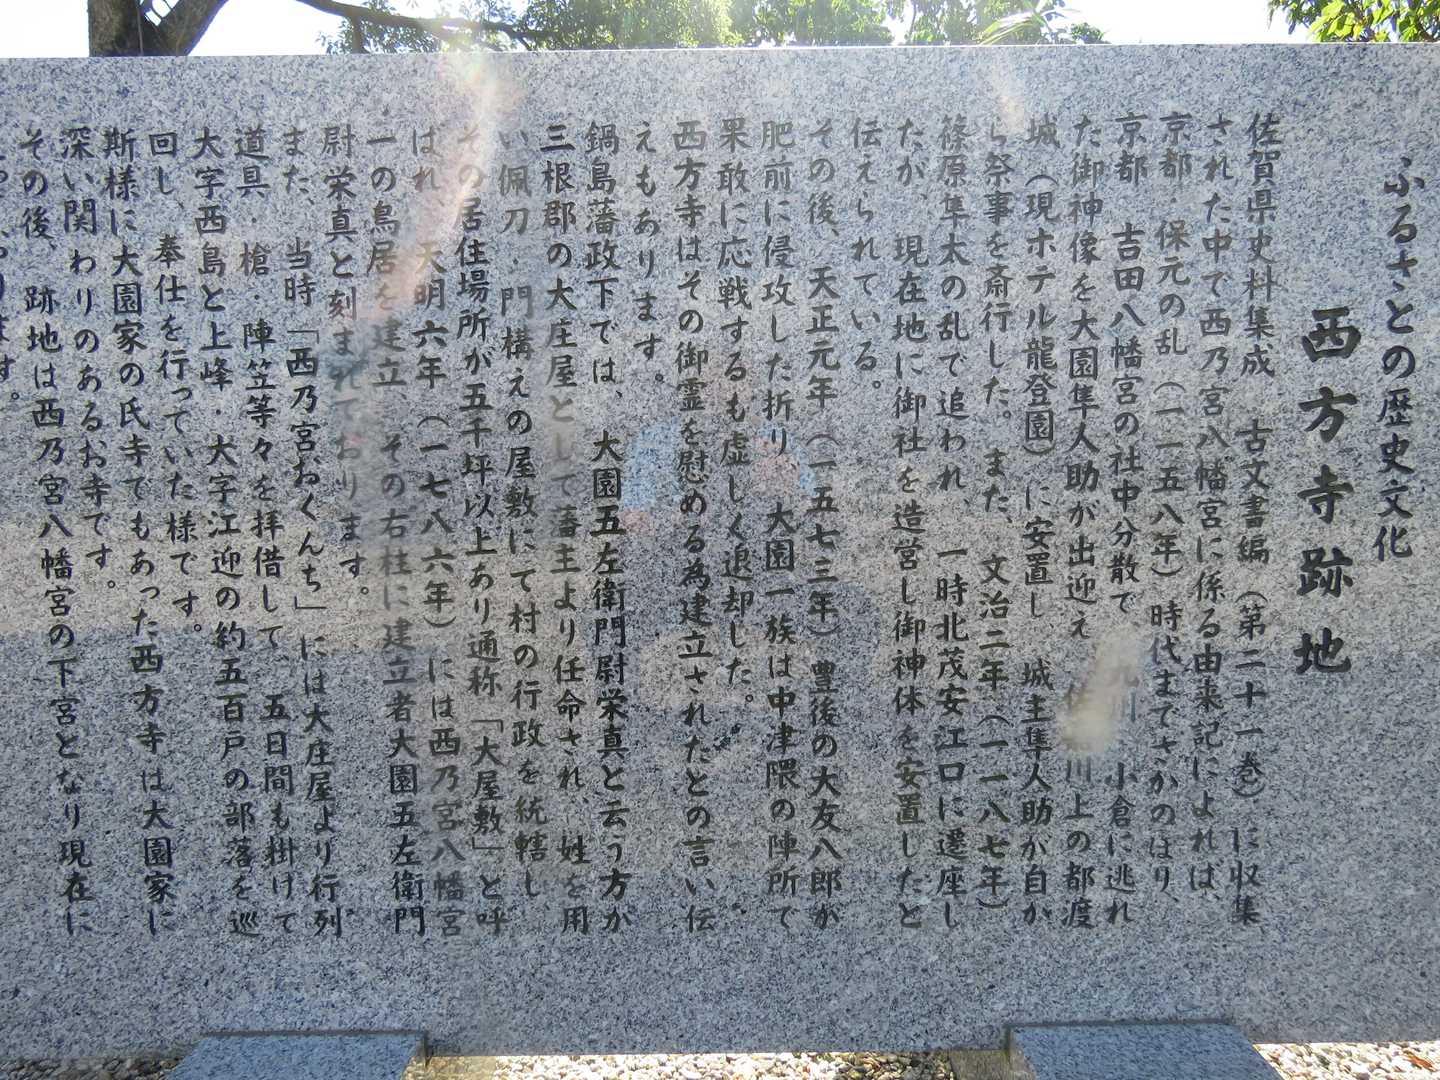 ふるさとの歴史文化
西方寺跡地
佐賀県史料集成 古文書編（第二十一巻）に収集
された中で西乃宮八幡宮に係る由来記によれば、
京都・保元の乱（一一五八年）時代までさかのぼり、
京都 吉田八幡宮の社中分散で、九州・小倉に逃れ
た御神像を大園隼人助が出迎え 佐嘉川上の都渡
城（現ホテル龍登園）に安置し 城主隼人助が自か
ら祭事を斎行した。また、文治二年（一一八七年）
篠原隼太の乱で追われ、一時北茂安江口に遷座し
たが、現在地に御社を造営し御神体を安置したと
伝えられている。
その後、天正元年（一五七三年）豊後の大友八郎が
肥前に侵攻した折り、大園一族は中津隈の陣所で
果敢に応戦するも虚しく退却した。
西方寺はその御霊を慰める為建立されたとの言い伝
えもあります。
鍋島藩政下では、大園五左衛門尉栄真と云う方が
三根郡の大庄屋として藩主より任命され、姓を用
い佩刀・門構えの屋敷にて村の行政を統轄し、
その居住場所が五千坪以上あり通称「大屋敷」と呼
ばれ、天明六年（一七八六年）には西乃宮八幡宮
一の鳥居を建立、その右柱に建立者大園五左衛門
尉栄真と刻まれております。
また、当時「西乃宮おくんち」には大庄屋より行列
道具・槍・陣笠等々を拝借して、五日間も掛けて
大字西島と上峰・大字江迎の約五百戸の部落を巡
回し、奉仕を行っていた様です。
斯様に大園家の氏寺でもあった西方寺は大園家に
深い関わりのあるお寺です。
その後、跡地は西乃宮八幡宮の下宮となり現在に